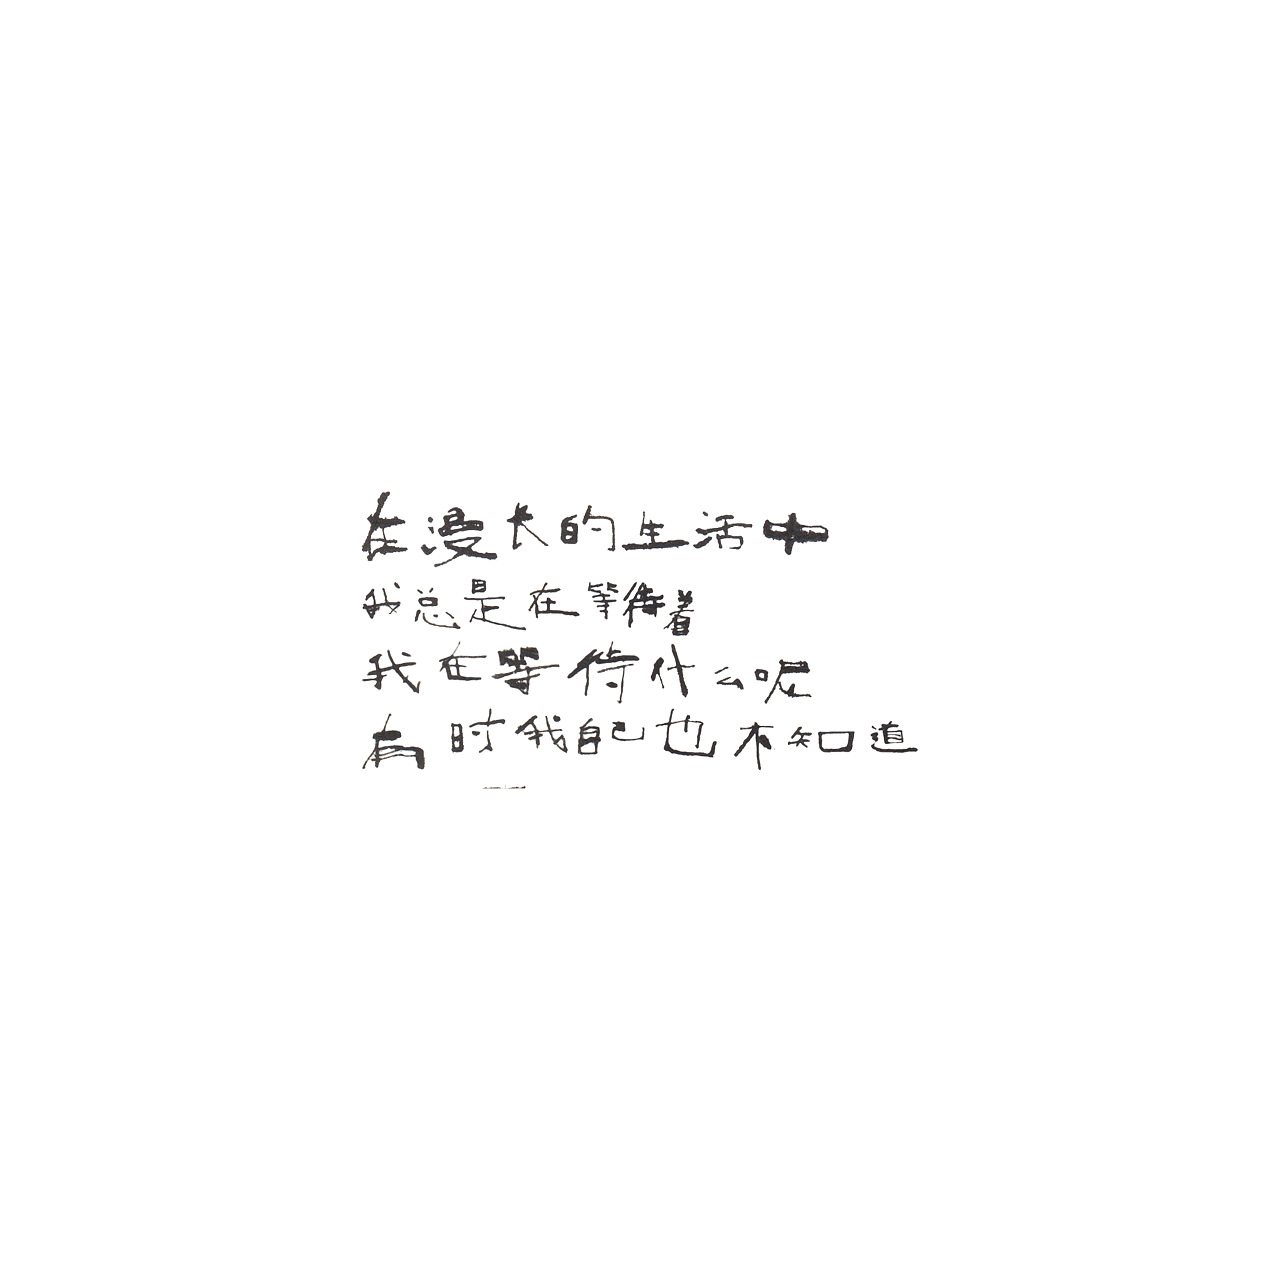 在漫长的生活中
我总是在等待着
我在等待什么呢
有时我自己也不知道